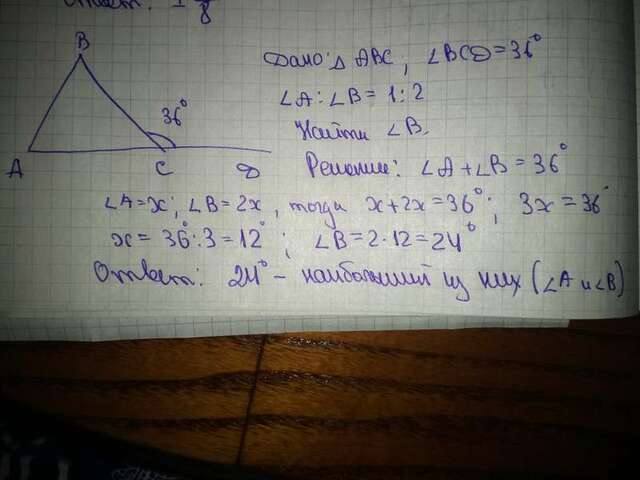 Ответ:
A
B
C
D
36°
Дано: Δ ABC, ∠BCD=36°
∠A:∠B=1:2
Найти ∠B.
Решение: ∠A+∠B=36°
∠A=x°, ∠B=2x°, тогда x+2x=36°; 3x=36
x=36°:3=12°; ∠B=2·12=24°,
Ответ: 24° - наибольший из них (∠A и ∠B)